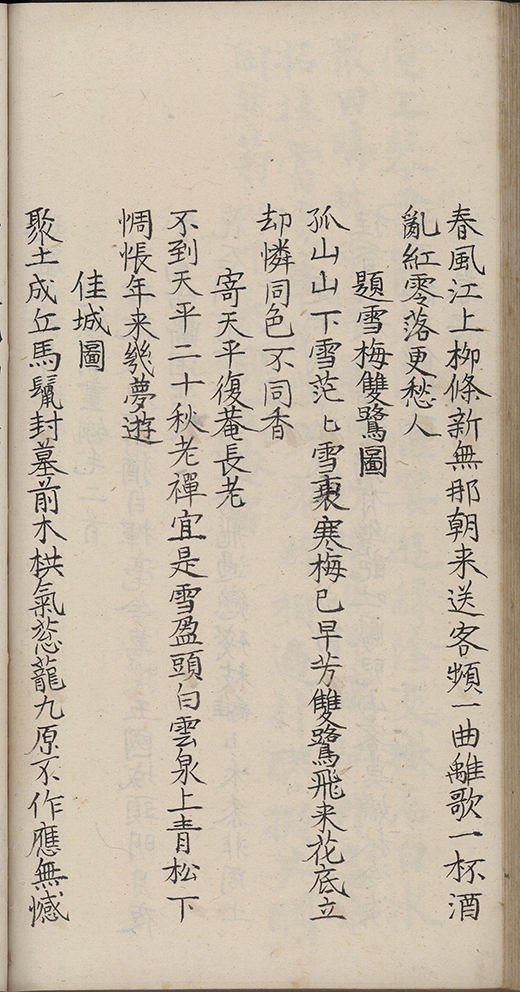 春風江上柳條新無那朝来送客頻一曲離歌一杯酒
亂紅零落更愁人
題雪梅雙鷺圖
孤山山下雪茫匕雪裏寒梅已早芳雙鷺飛来花底立
却憐同色不同香
寄天平復菴長老
不到天平二十秋老禪宜是雪盈頭白雲泉上青松下
惆悵年来幾夢遊
佳城圖
聚土成丘馬鬣封墓前木栱氣葱蘢九原不作應無憾